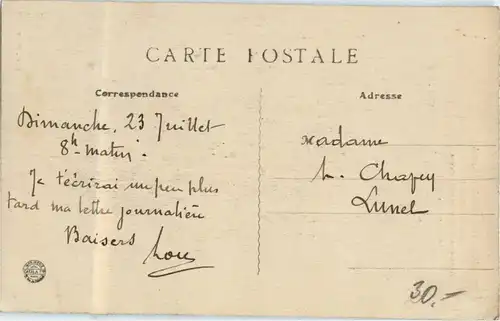 CARTE POSTALE
Correspondance
Adresse
Dimanche, 23 Juillet
8h matin.
Je t'écrirai un peu plus
tard ma lettre journalière
Baisers Lou
Madame
Lunel
30.-